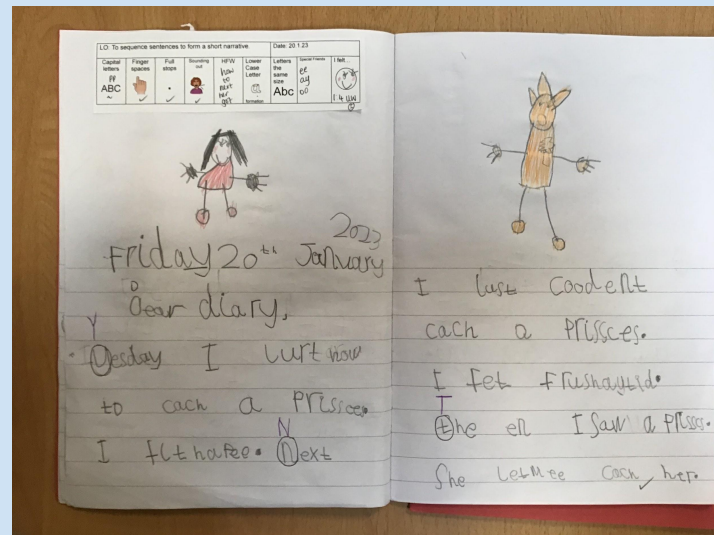 LO: To sequence sentences to form a short narrative Date: 20.1.23
Capital letters Finger spaces Full stops Sounding out HFW Lower Case Letter Letters the same size Special Friends I felt...
ABC how to next her get formation Abc ee ay oo
2023
Friday 20th January
D
Dear diary,
Y
yesday I lurt how
to cach a
N
I felt hafee. next
I coodent
cach a prissces.
I fet frushaytid.
T
the en I saw a
She let mee cach her.